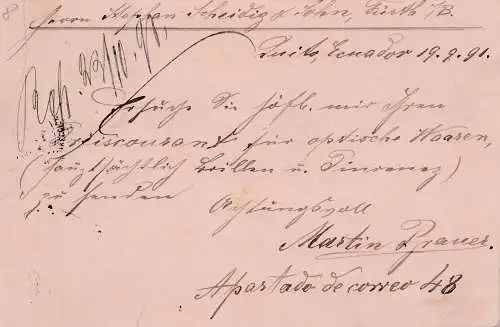 Herrn Stephan Scheidig & Sohn, Fürth i/B.
Quito, Ecuador 19.9.91.
Rep. 22/10.91.
Ersuche Sie höfl. mir Ihren
Preiscourant für optische Waaren,
(hauptsächlich Brillen u. Pincenez)
zu senden
Achtungsvoll
Martin Brauer.
Apartado de correo 48